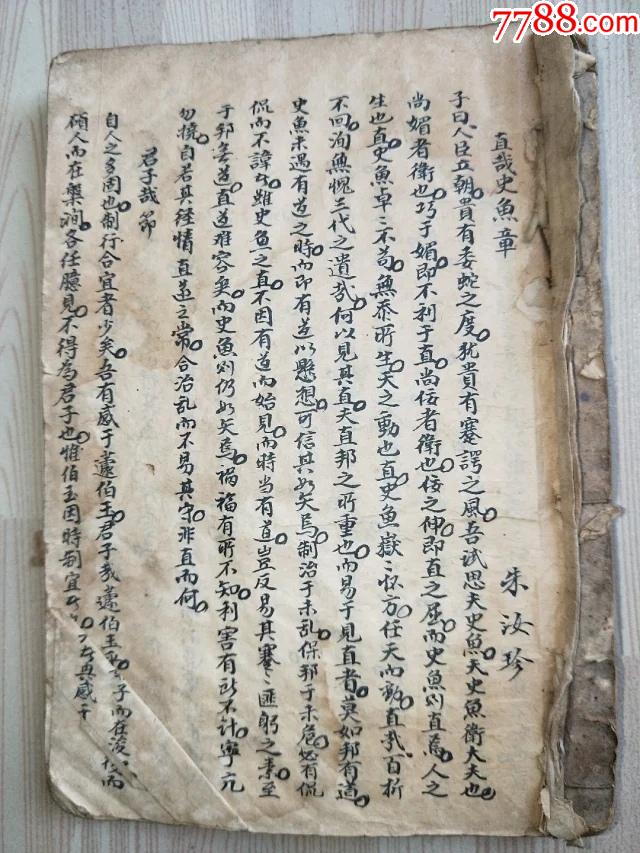 7788.com
直哉史魚章
朱汝珍
子曰人臣立朝貴有委蛇之度尤貴有蹇諤之風吾試思夫史魚夫史魚衛大夫也
尚媚者衛也巧于媚即不利于直尚佞者衛也佞之伸即直之屈而史魚則直焉人之
生也直史魚卓々不苟無忝所生天之動也直史魚嶽々怀方任天而動直哉百折
不回洵無愧三代之遺哉何以見其直夫直邦之所重也而易于見直者莫如邦有道
史魚未遇有道之時而即有道以懸想可信其如矢焉制治于未亂保邦于未危忽有侃
侃而不諱者雖史魚之直不因有道而始見而時當有道豈反易其蹇々匪躬之素至
于邦無道直道難容矣而史魚則仍如矢焉禍福有所不知利害有所不計寧亢
勿撓自若其徑情直遂之常合治亂而不易其守非直而何
君子哉節
自人之多固也制行合宜者少矣吾有感于蘧伯玉君子哉蘧伯玉子而在
碩人而在槃澗各任臆見不得為君子也惟伯玉因時制宜其感于